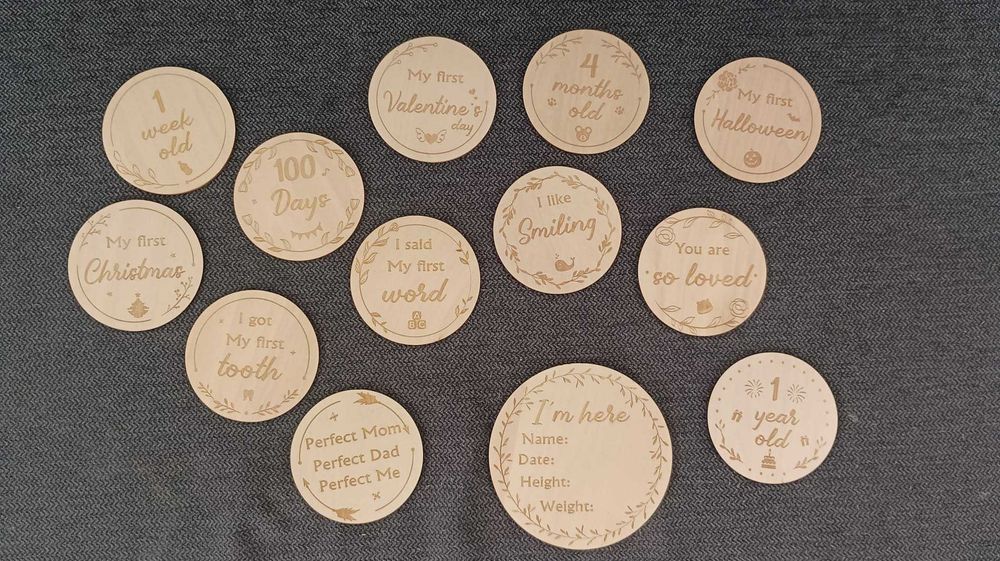 1
week
old
My first
Valentine's
day
4
months
old
My first
Halloween
100
Days
My first
Christmas
I said
My first
word
A
BC
I like
Smiling
You are
so loved
I got
My first
tooth
Perfect Mom
Perfect Dad
Perfect Me
I'm here
Name:
Date:
Height:
Weight:
1
year
old